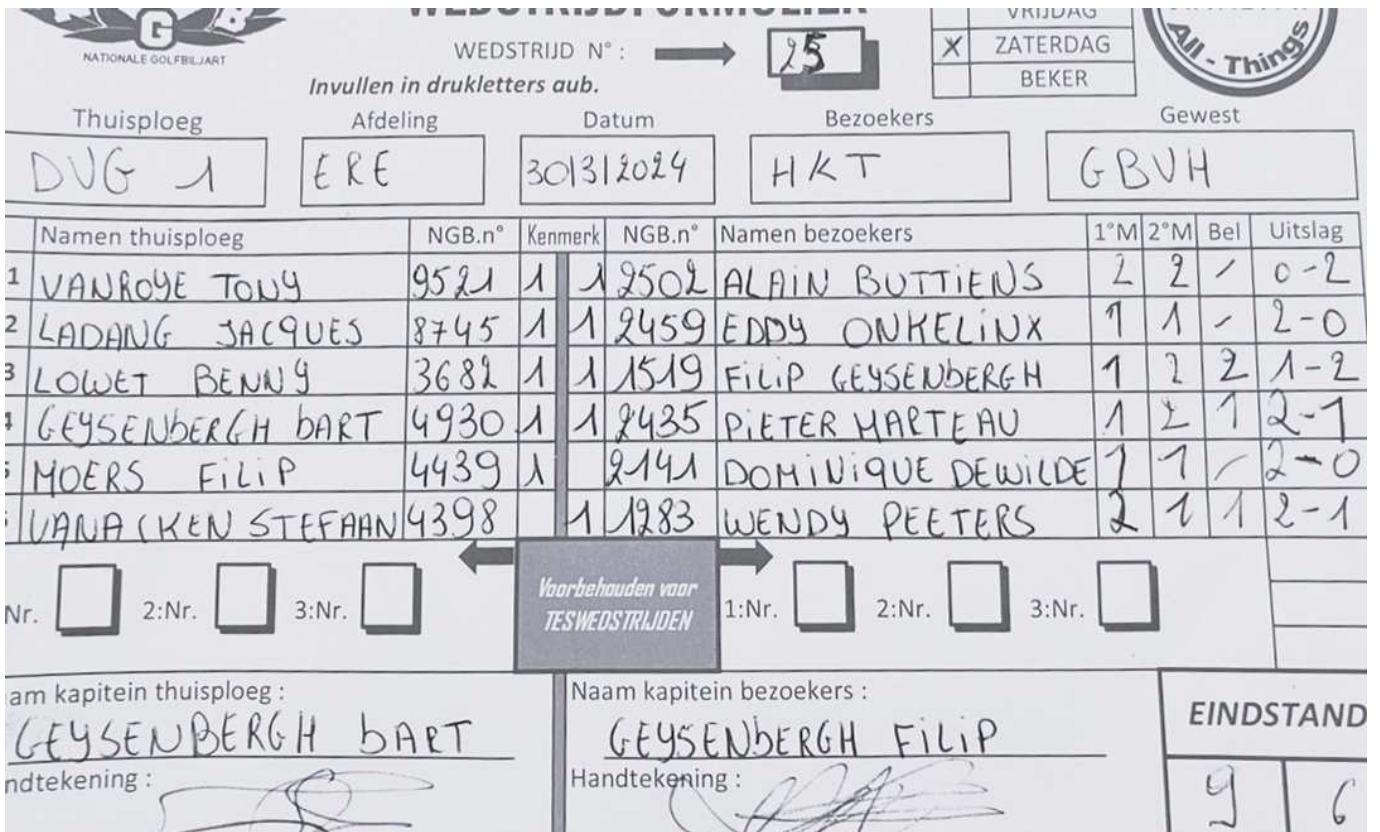 WEDSTRIJDFORMULIER
NATIONALE GOLFBILJART
WEDSTRIJD N° : 25
Invullen in drukletters aub.
VRIJDAG
X ZATERDAG
BEKER
All - Things
Thuisploeg Afdeling Datum Bezoekers Gewest
DVG 1 ERE 30/3/2024 HKT GBVH
Namen thuisploeg NGB.n° Kenmerk NGB.n° Namen bezoekers 1°M 2°M Bel Uitslag
1 VANROYE TONY 9521 1 1 2502 ALAIN BUTTIENS 2 2 / 0-2
2 LADANG JACQUES 8745 1 1 2459 EDDY ONKELINX 1 1 - 2-0
3 LOWET BENNY 3682 1 1 1519 FILIP GEYSENbERGH 1 2 2 1-2
4 GEYSENbERGH bART 4930 1 1 2435 PIETER MARTEAU 1 2 1 2-1
MOERS FILIP 4439 1 2141 DOMINIQUE DEWILDE 1 1 / 2-0
VANACKEN STEFAAN 4398 1 1283 WENDY PEETERS 2 1 1 2-1
Nr. 2:Nr. 3:Nr. Voorbehouden voor TESWEDSTRIJDEN 1:Nr. 2:Nr. 3:Nr.
am kapitein thuisploeg : Naam kapitein bezoekers :
GEYSENBERGH bART GEYSENbERGH FILIP
EINDSTAND
ndtekening : Handtekening :
9 6